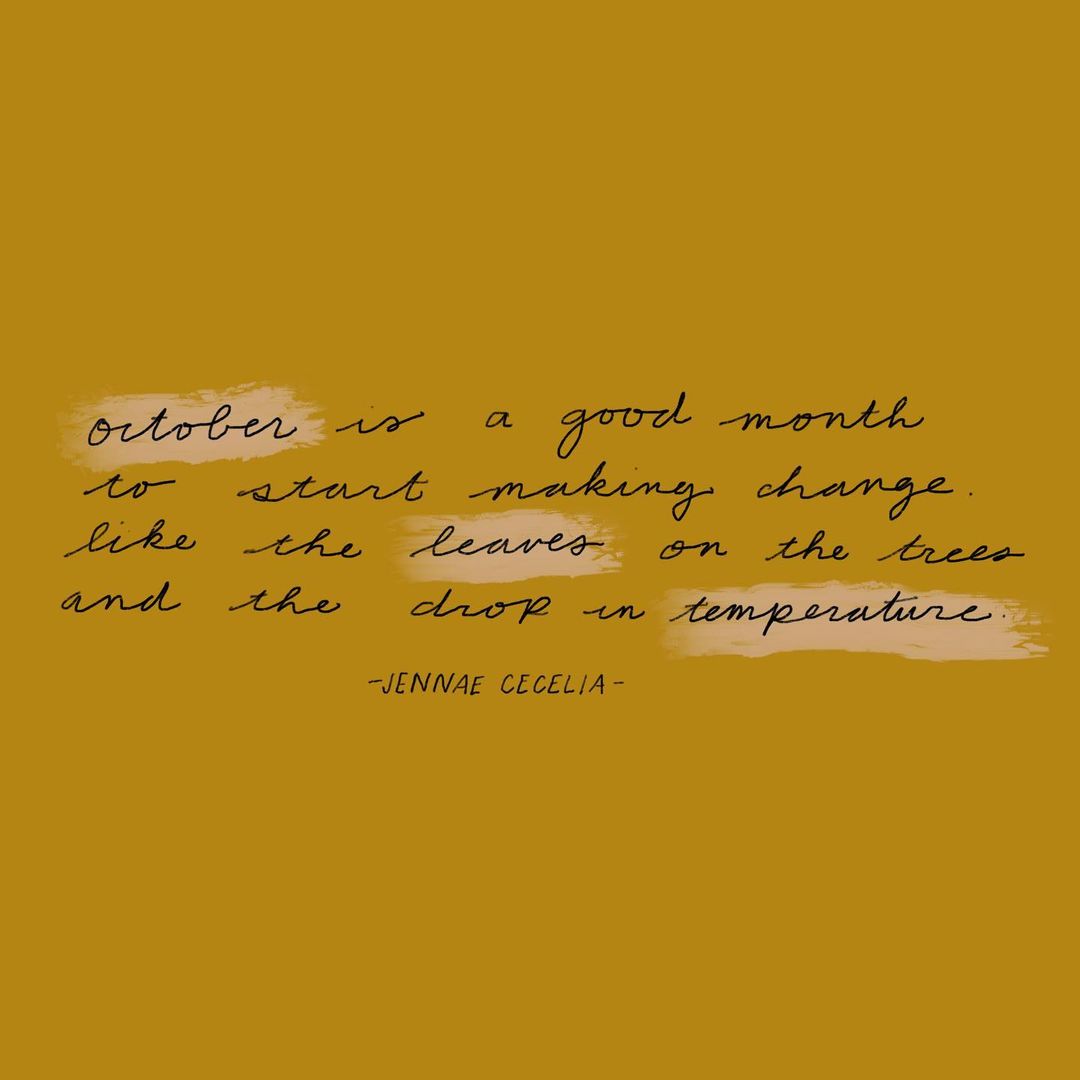 october is a good month
to start making change.
like the leaves on the trees
and the drop in temperature.
-JENNAE CECELIA-